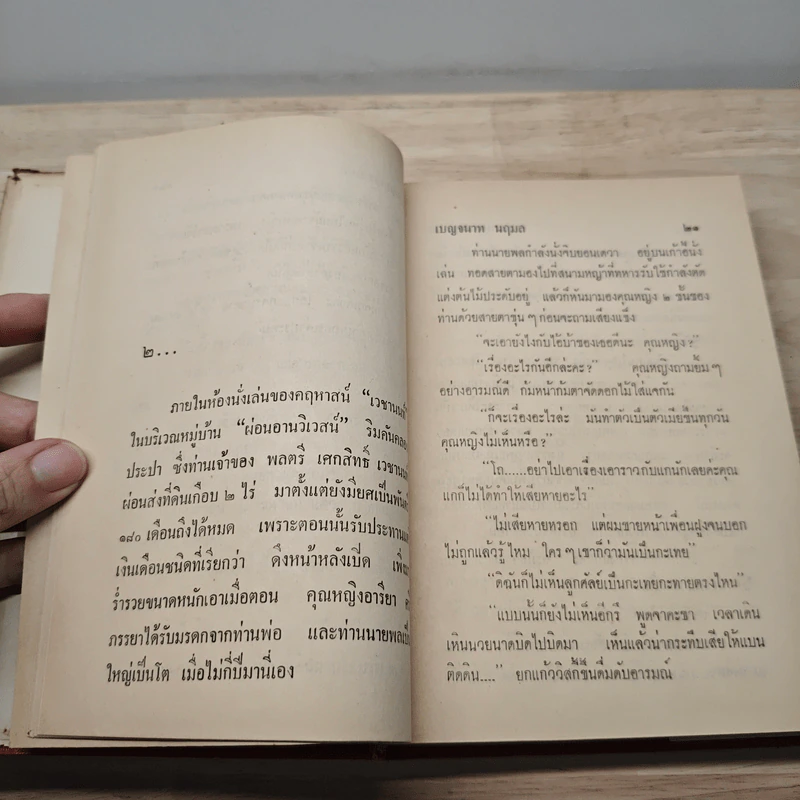 ๒...
ภายในห้องนั่งเล่นของคฤหาสน์ “เวชานนท์
ในบริเวณหมู่บ้าน “ผ่อนอานวิเวสน์” ริมคันคลอง
ประปา ซึ่งท่านเจ้าของ พลตรี เศกสิทธิ์ เวชานนท์
ผ่อนส่งที่ดินเกือบ ๒ ไร่ มาตั้งแต่ยังมียศเป็นพันตรี
๑๘๐ เดือนถึงได้หมด เพราะตอนนั้นรับประทานแต่
เงินเดือนชนิดที่เรียกว่า ดึงหน้าหลังเปิด เพิ่ง
ร่ำรวยขนาดหนักเอาเมื่อตอน คุณหญิงอารียา
ภรรยาได้รับมรดกจากท่านพ่อ และท่านนายพลเป็น
ใหญ่เป็นโต เมื่อไม่กี่ปีมานี่เอง
เบญจมาท นฤมล ๒๑
ท่านนายพลกำลังนั่งจิบยอนเดวา อยู่บนเก้าอี้นั่ง
เล่น ทอดสายตามองไปที่สนามหญ้าที่ทหารรับใช้กำลังตัด
แต่งต้นไม้ประดับอยู่ แล้วก็หันมามองคุณหญิง ๒ ชั้นของ
ท่านด้วยสายตาขุ่น ๆ ก่อนจะถามเสียงแข็ง
“จะเอายังไงกับไอ้บ้าของเธอดีนะ คุณหญิง?”
“เรื่องอะไรกันอีกล่ะคะ?” คุณหญิงถามยิ้ม ๆ
อย่างอารมณ์ดี ก้มหน้าก้มตาจัดดอกไม้ใส่แจกัน
“ก็จะเรื่องอะไรล่ะ มันทำตัวเป็นตัวเมียขึ้นทุกวัน
คุณหญิงไม่เห็นหรือ?”
“โถ......อย่าไปเอาเรื่องเอาราวกับแกนักเลยค่ะคุณ
แกก็ไม่ได้ทำให้เสียหายอะไร”
“ไม่เสียหายหรอก แต่ผมขายหน้าเพื่อนฝูงจนบอก
ไม่ถูกแล้วรู้ไหม ใคร ๆ เขาก็ว่ามันเป็นกะเทย”
“ดิฉันก็ไม่เห็นลูกศัลย์เป็นกะเทยกะทายตรงไหน”
“แบบนั้นก็ยังไม่เห็นอีกรึ พูดจาคะขา เวลาเดิน
เหินนวยนาดบิดไปบิดมา เห็นแล้วน่ากระทืบเสียให้แบน
ติดดิน....” ยกแก้ววิวิสกี้ขึ้นดื่มดับอารมณ์